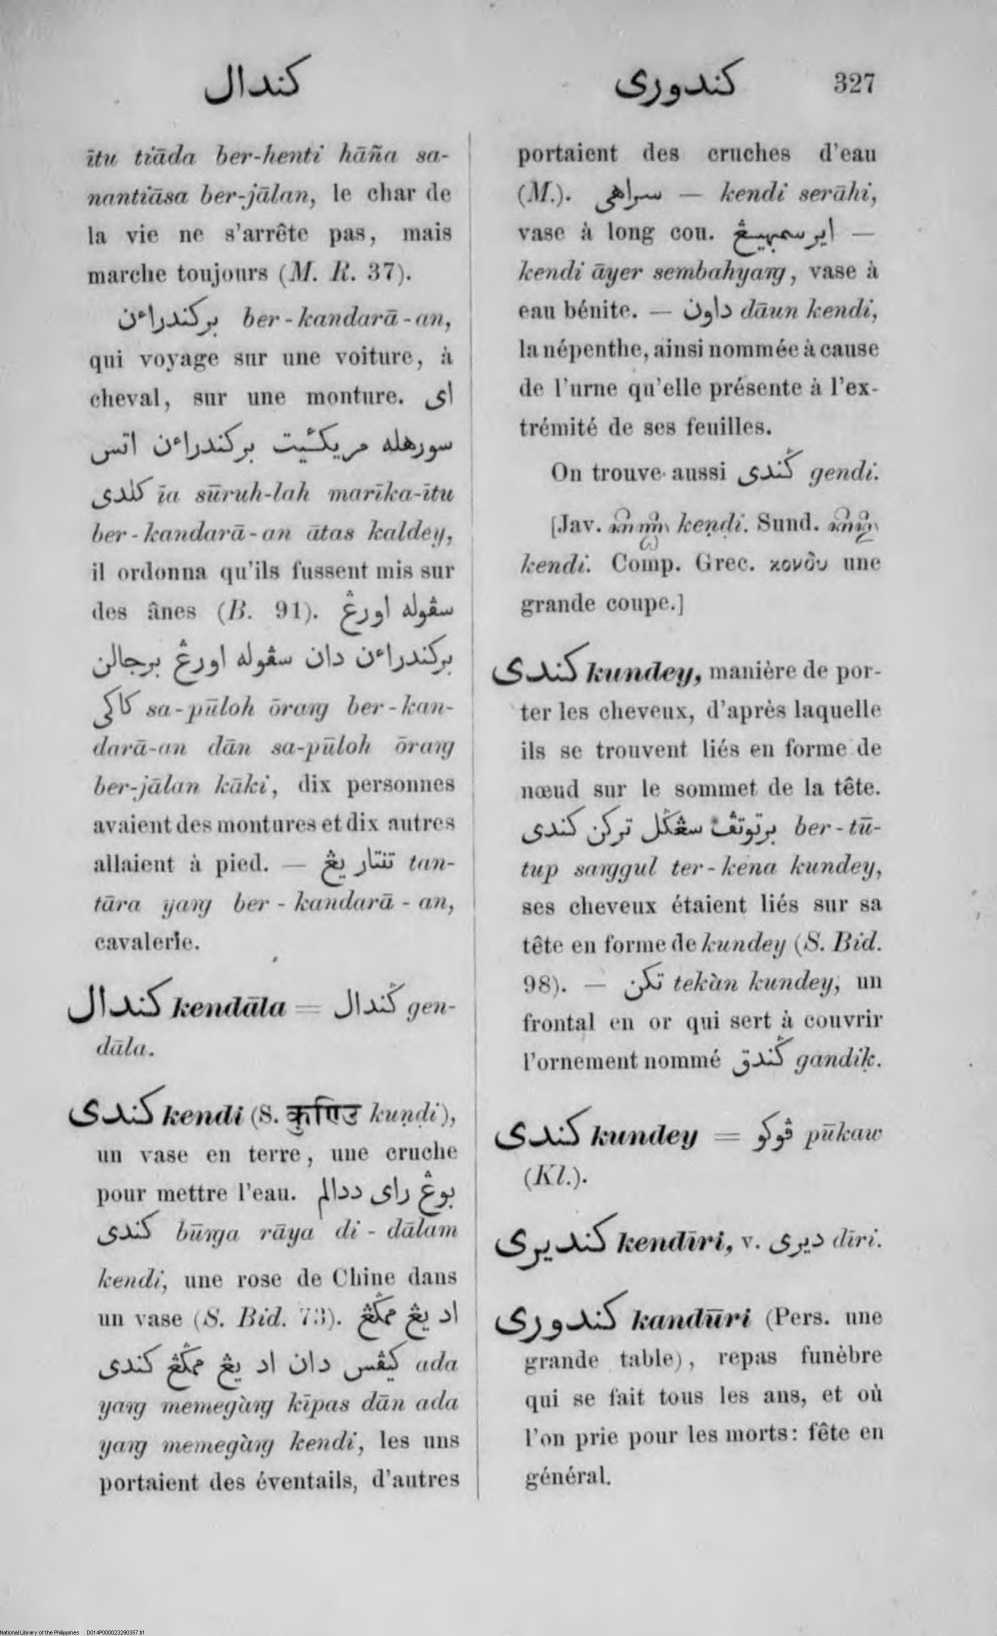 كندال
كندوری 327
ītu tiāda ber-henti hāña sa-
nantiāsa ber-jālan, le char de
la vie ne s'arrête pas, mais
marche toujours (M. R. 37).
بركندراءن ber-kandarā-an,
qui voyage sur une voiture, à
cheval, sur une monture. ای
سورهله مريكئيت بركندراءن اتس
كلدی īa sūruh-lah marīka-ītu
ber-kandarā-an ātas kaldey,
il ordonna qu'ils fussent mis sur
des ânes (B. 91). سڤوله اورڠ
بركندراءن دان سڤوله اورڠ برجالن
كاكي sa-pūloh ōraŋ ber-kan-
darā-an dān sa-pūloh ōraŋ
ber-jālan kāki, dix personnes
avaient des montures et dix autres
allaient à pied. — تنتار يڠ tan-
tāra yaŋ ber-kandarā-an,
cavalerie.
كندال kendāla = ڬندال gen-
dāla.
كندی kendi (S. कुण्डि kuṇdi),
un vase en terre, une cruche
pour mettre l'eau. بوڠ رای ددالم
كندی būŋa rāya di-dālam
kendi, une rose de Chine dans
un vase (S. Bid. 73). اد يڠ ممڬڠ
كيڤس دان اد يڠ ممڬڠ كندی ada
yaŋ memegàŋ kīpas dān ada
yaŋ memegàŋ kendi, les uns
portaient des éventails, d'autres
portaient des cruches d'eau
(M.). سراهي — kendi serāhi,
vase à long cou. اير سمبهيڠ —
kendi āyer sembahyaŋ, vase à
eau bénite. — داون dāun kendi,
la népenthe, ainsi nommée à cause
de l'urne qu'elle présente à l'ex-
trémité de ses feuilles.
On trouve aussi ڬندی gendi.
[Jav. kenḍi. Sund.
kendi. Comp. Grec. κονδυ une
grande coupe.]
كندی kundey, manière de por-
ter les cheveux, d'après laquelle
ils se trouvent liés en forme de
nœud sur le sommet de la tête.
برتوتڤ سڠڬل تركن كندی ber-tū-
tup saŋgul ter-kena kundey,
ses cheveux étaient liés sur sa
tête en forme de kundey (S. Bid.
98). — تكن tekàn kundey, un
frontal en or qui sert à couvrir
l'ornement nommé ڬندق gandiḳ.
كندی kundey = ڤوكو pūkaw
(Kl.).
كنديری kendīri, v. ديری dīri.
كندوری kandūri (Pers. une
grande table), repas funèbre
qui se fait tous les ans, et où
l'on prie pour les morts: fête en
général.
National Library of the Philippines